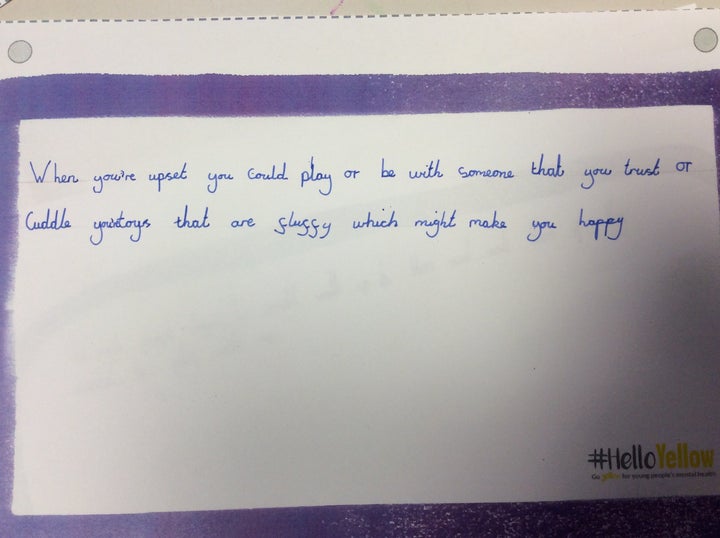 When you're upset you could play or be with someone that you trust or
Cuddle your toys that are fluffy which might make you happy
#HelloYellow
Go yellow for young people's mental health